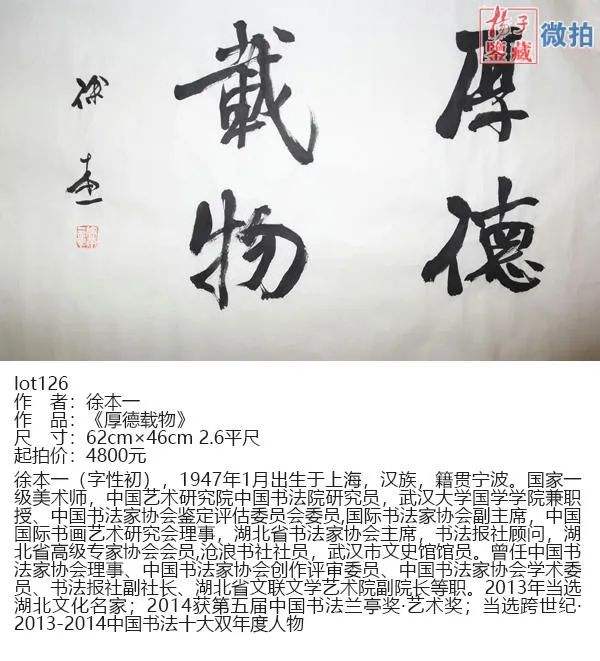 揚子
鑒藏
微拍
厚德
載物
徐本一
lot126
作 者：徐本一
作 品：《厚德载物》
尺 寸：62cm×46cm 2.6平尺
起拍价：4800元
徐本一（字性初），1947年1月出生于上海，汉族，籍贯宁波。国家一
级美术师，中国艺术研究院中国书法院研究员，武汉大学国学学院兼职
授、中国书法家协会鉴定评估委员会委员,国际书法家协会副主席，中国
国际书画艺术研究会理事，湖北省书法家协会主席，书法报社顾问，湖
北省高级专家协会会员,沧浪书社社员，武汉市文史馆馆员。曾任中国书
法家协会理事、中国书法家协会创作评审委员、中国书法家协会学术委
员、书法报社副社长、湖北省文联文学艺术院副院长等职。2013年当选
湖北文化名家；2014获第五届中国书法兰亭奖·艺术奖；当选跨世纪·
2013-2014中国书法十大双年度人物